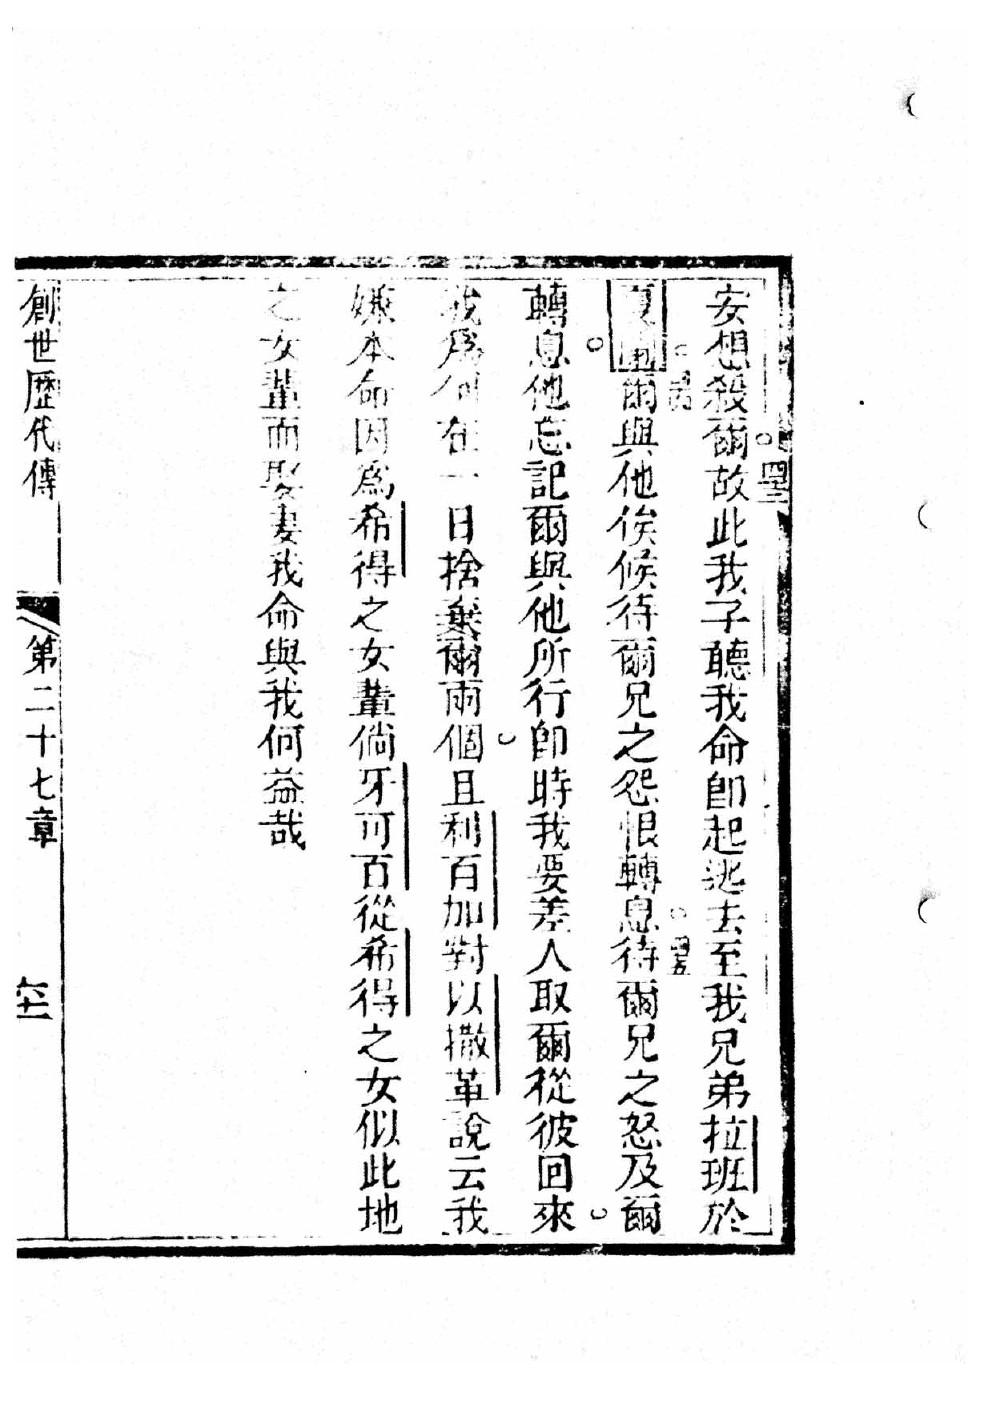 四三
安想殺爾故此我子聽我命即起逃去至我兄弟拉班於
四四
四五
夏爾與他俟候待爾兄之怨恨轉息待爾兄之怒及爾
轉息他忘記爾與他所行即時我要差人取爾從彼回來
我爲何在一日捨棄爾兩個且利百加對以撒革說云我
嫌本命因爲希得之女輩倘牙可百從希得之女似此地
之女輩而娶妻我命與我何益哉
創世歷代傳 第二十七章 六十二